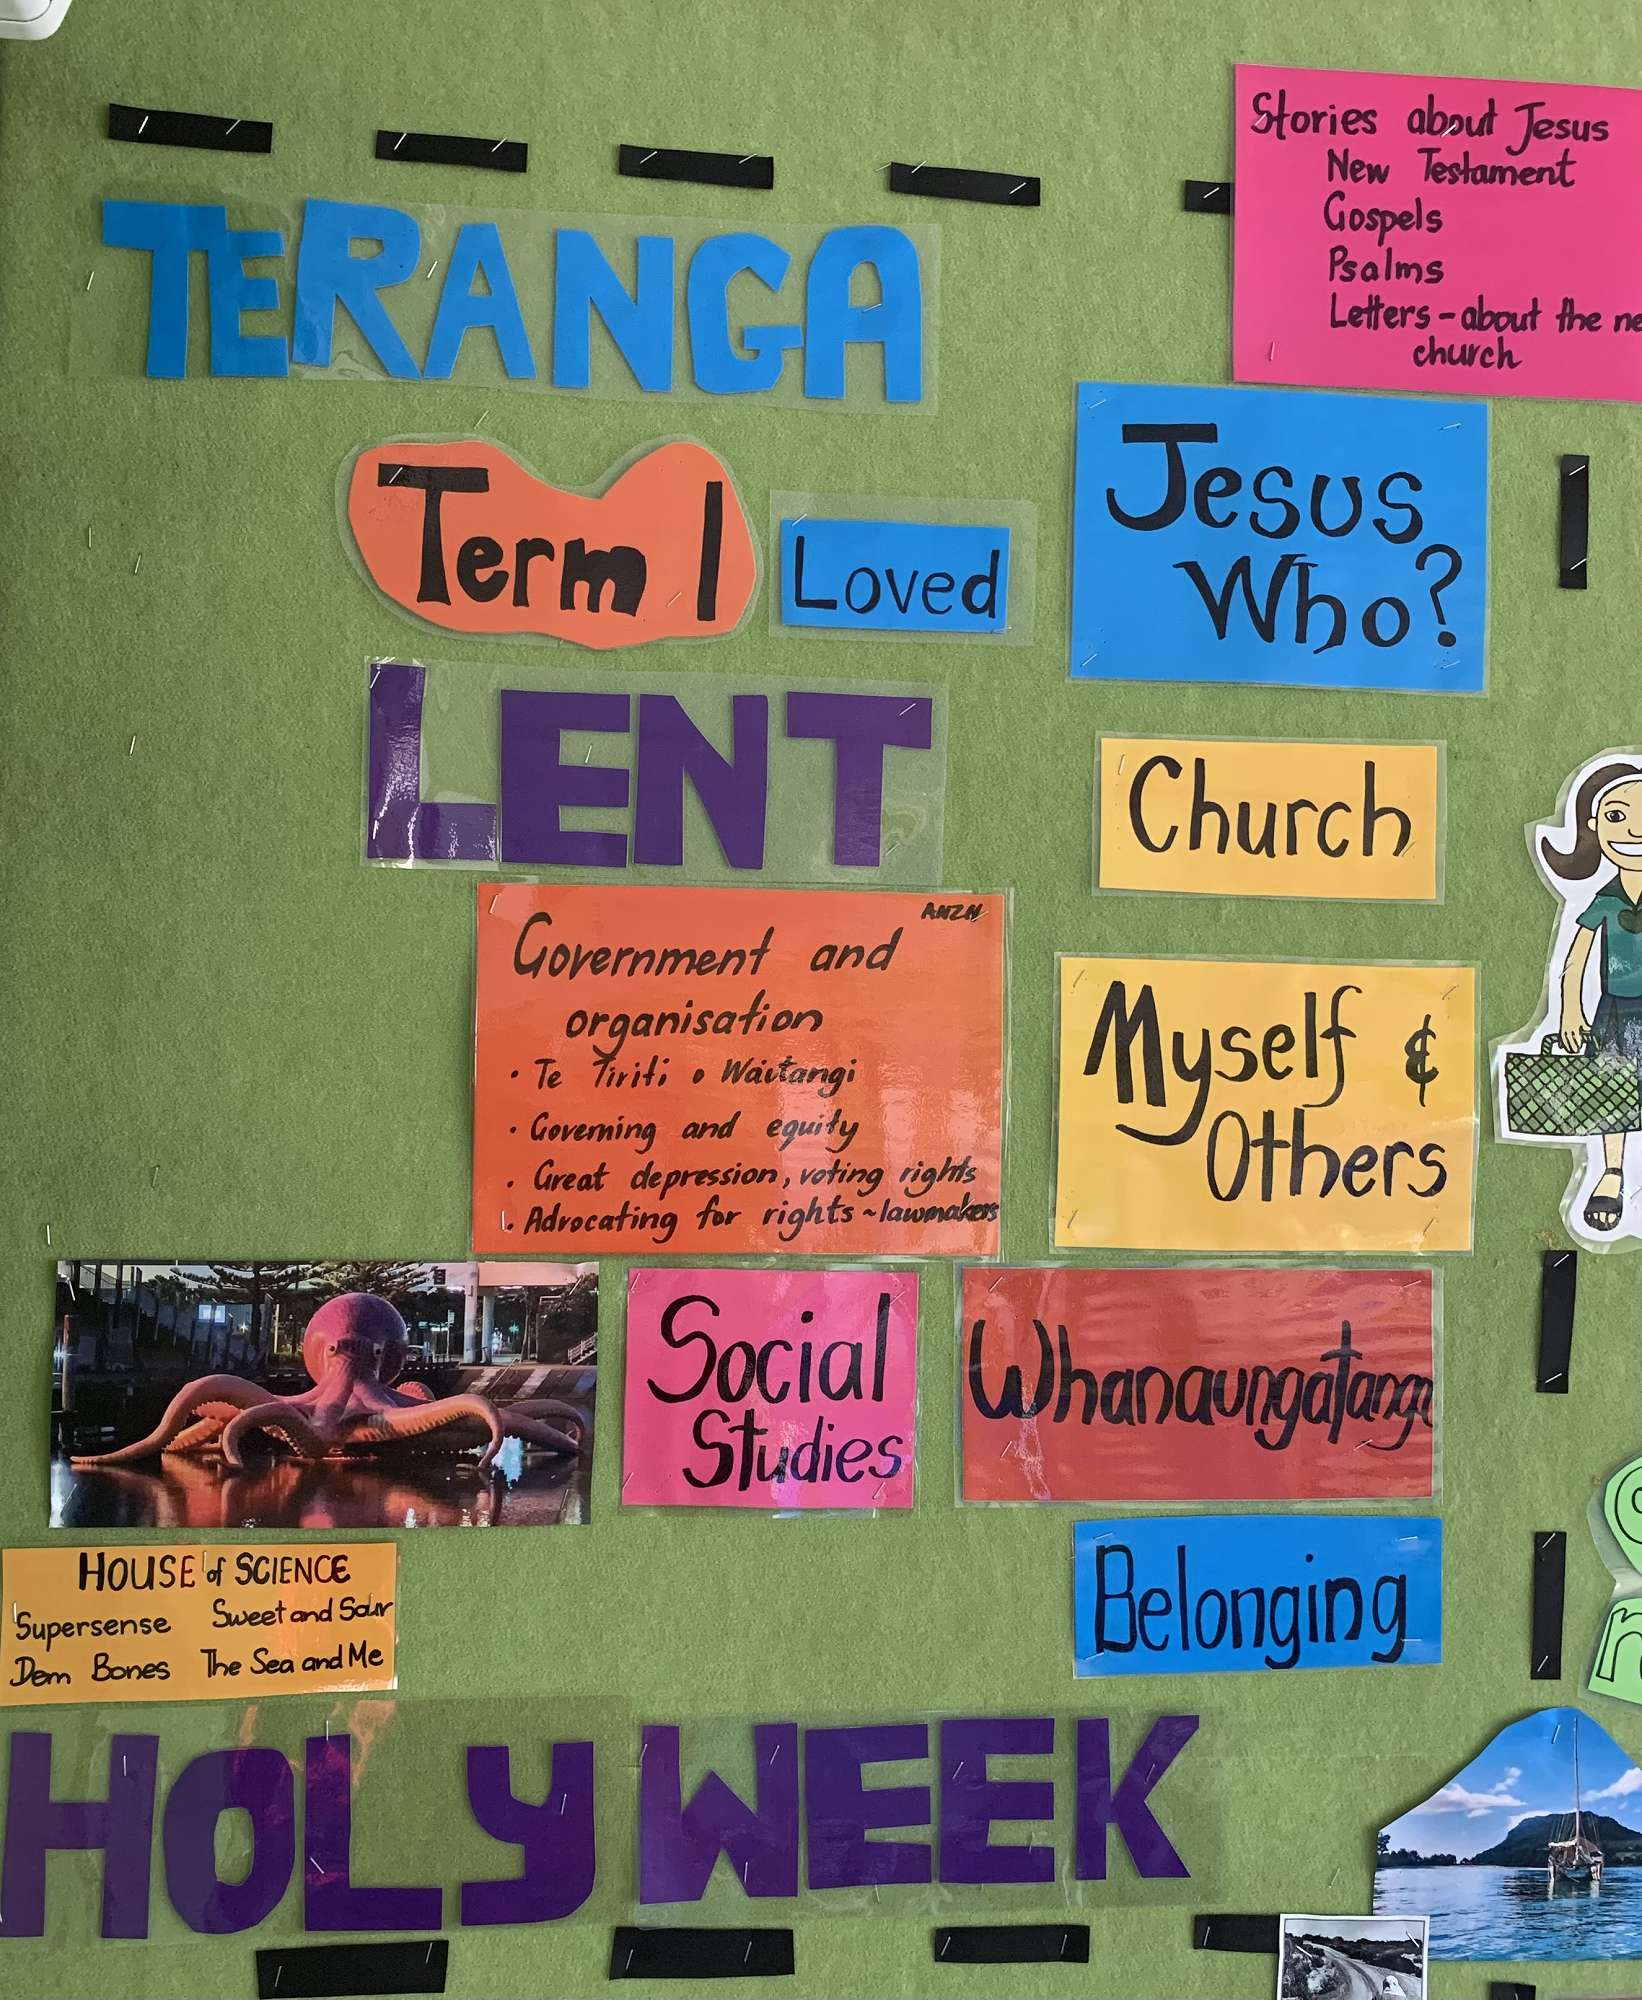 Stories about Jesus
New Testament
Gospels
Psalms
Letters - about the
church
TERANGA
Term 1
Loved
Jesus
Who?
LENT
Church
ANZH
Government and
organisation
• Te Tiriti o Waitangi
• Governing and equity
• Great depression, voting rights
• Advocating for rights ~ lawmakers
Myself &
Others
Social
Studies
Whanaungatanga
Belonging
HOUSE of SCIENCE
Supersense Sweet and Sour
Dem Bones The Sea and Me
HOLY WEEK